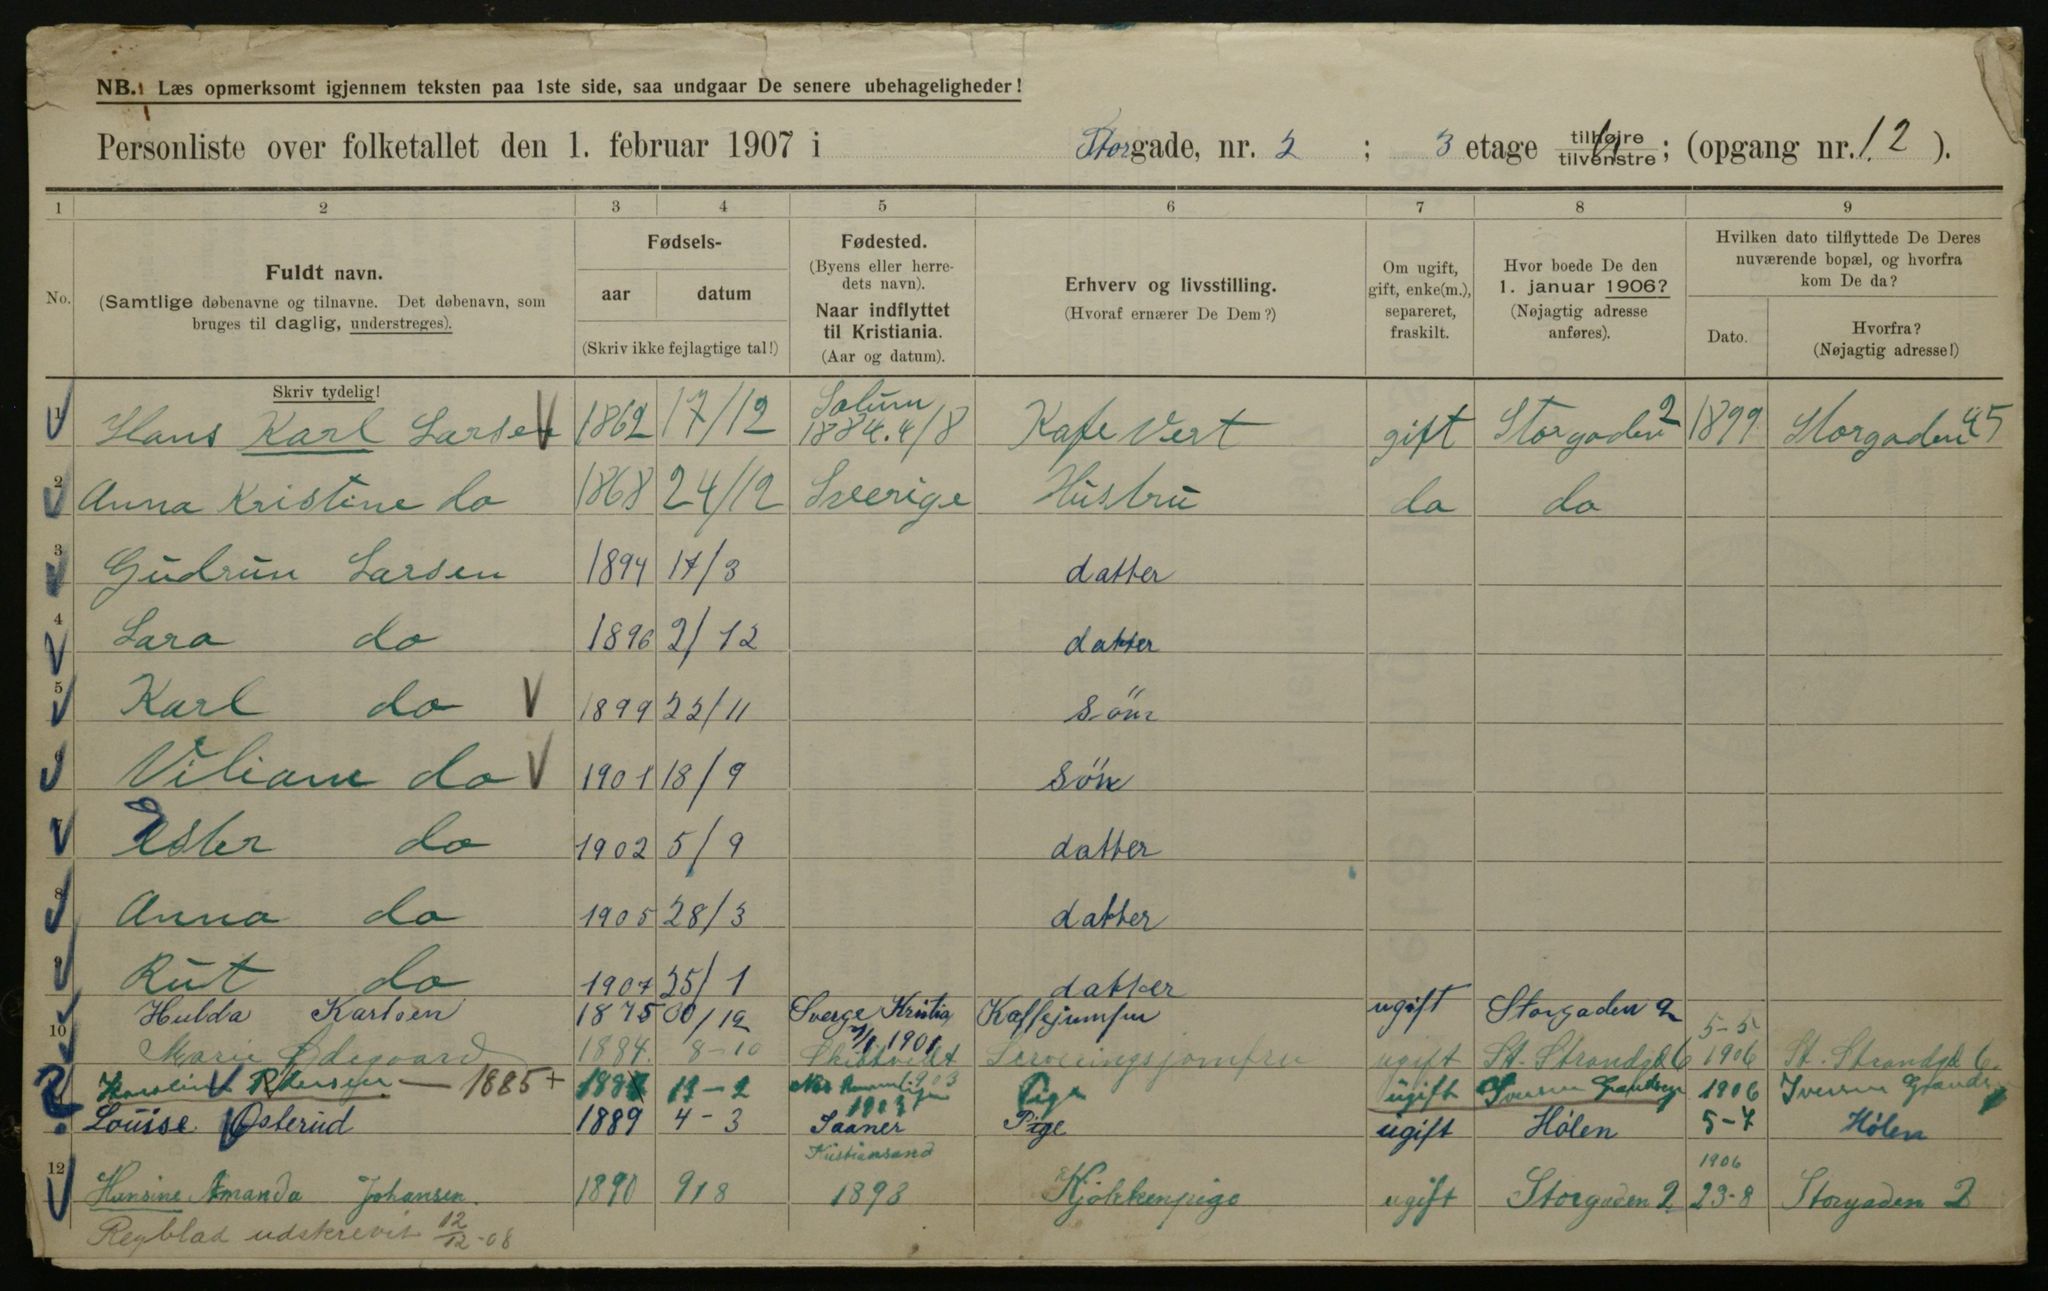 NB. Læs opmerksomt igjennem teksten paa 1ste side, saa undgaar De senere ubehageligheder!
Personliste over folketallet den 1. februar 1907 i Storgade, nr. 2 ; 3 etage tilhøjre tilvenstre; (opgang nr. 12 ).
1 2 3 4 5 6 7 8 9
No. Fuldt navn. (Samtlige døbenavne og tilnavne. Det døbenavn, som bruges til daglig, understreges). Skriv tydelig!
Fødsels- aar datum (Skriv ikke fejlagtige tal!)
Fødested. (Byens eller herredets navn). Naar indflyttet til Kristiania. (Aar og datum).
Erhverv og livsstilling. (Hvoraf ernærer De Dem?)
Om ugift, gift, enke(m.), separeret, fraskilt.
Hvor boede De den 1. januar 1906? (Nøjagtig adresse anføres).
Hvilken dato tilflyttede De Deres nuværende bopæl, og hvorfra kom De da? Dato. Hvorfra? (Nøjagtig adresse!)
1 Hans Karl Larsen 1862 17/12 Solum 1884.4/8 Kafe Vert gift Storgaden 2 1899 Storgaden 45
2 Anna Kristine do 1868 24/12 Sverige Hustru do do
3 Gudrun Larsen 1894 17/3 datter
4 Lara do 1896 2/12 datter
5 Karl do 1899 22/11 sön
6 Viliam do 1901 18/9 sön
7 Ester do 1902 5/9 datter
8 Anna do 1905 28/3 datter
9 Rut do 1907 25/1 datter
Hulda Karlsen 1875 30/12 Sverge Kristia 1901 Kaffejumfru ugift Storgaden 2
10 Marie Ødegaard 1884. 8-10 Skiptvedt Serveringsjomfru ugift St. Strandgd 6 5-5 1906 St. Strandgd 6.
Karoline Pedersen — 1885+ 17-2 1903 Pige ugift 1906
Louise Østerud 1889 4-3 Saaner Pige ugift Hölen 5-7 Hölen
12 Hansine Amanda Johansen. 1890 9/8 Kristiansand 1898 Kjökkenpige ugift Storgaden 2 1906 23-8 Storgaden 2
Regblad udskrevit 12/12-08